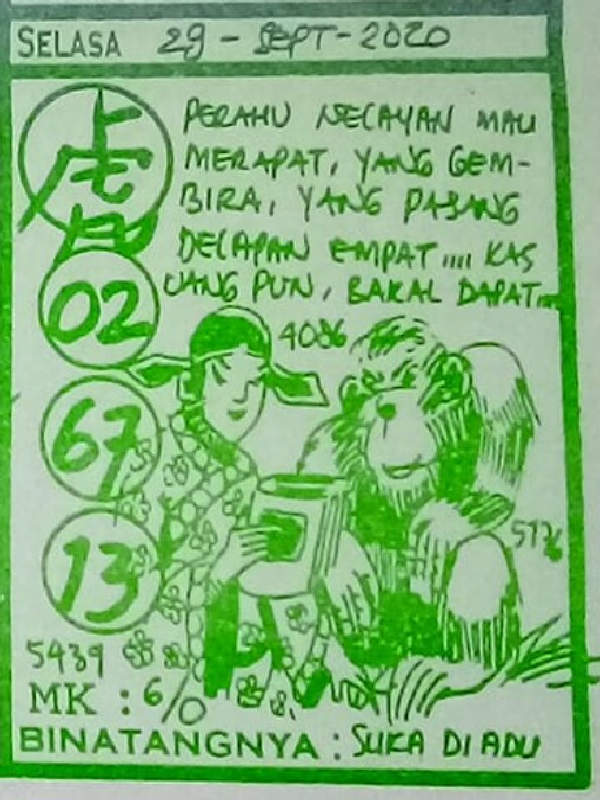 SELASA 29 - SEPT - 2020
PERAHU NELAYAN MAU
MERAPAT, YANG GEM-
BIRA, YANG PASANG
DELAPAN EMPAT.... KAS
UANG PUN, BAKAL DAPAT...
02
4086
67
13
5439
MK : 6/0
BINATANGNYA : SUKA DI ADU